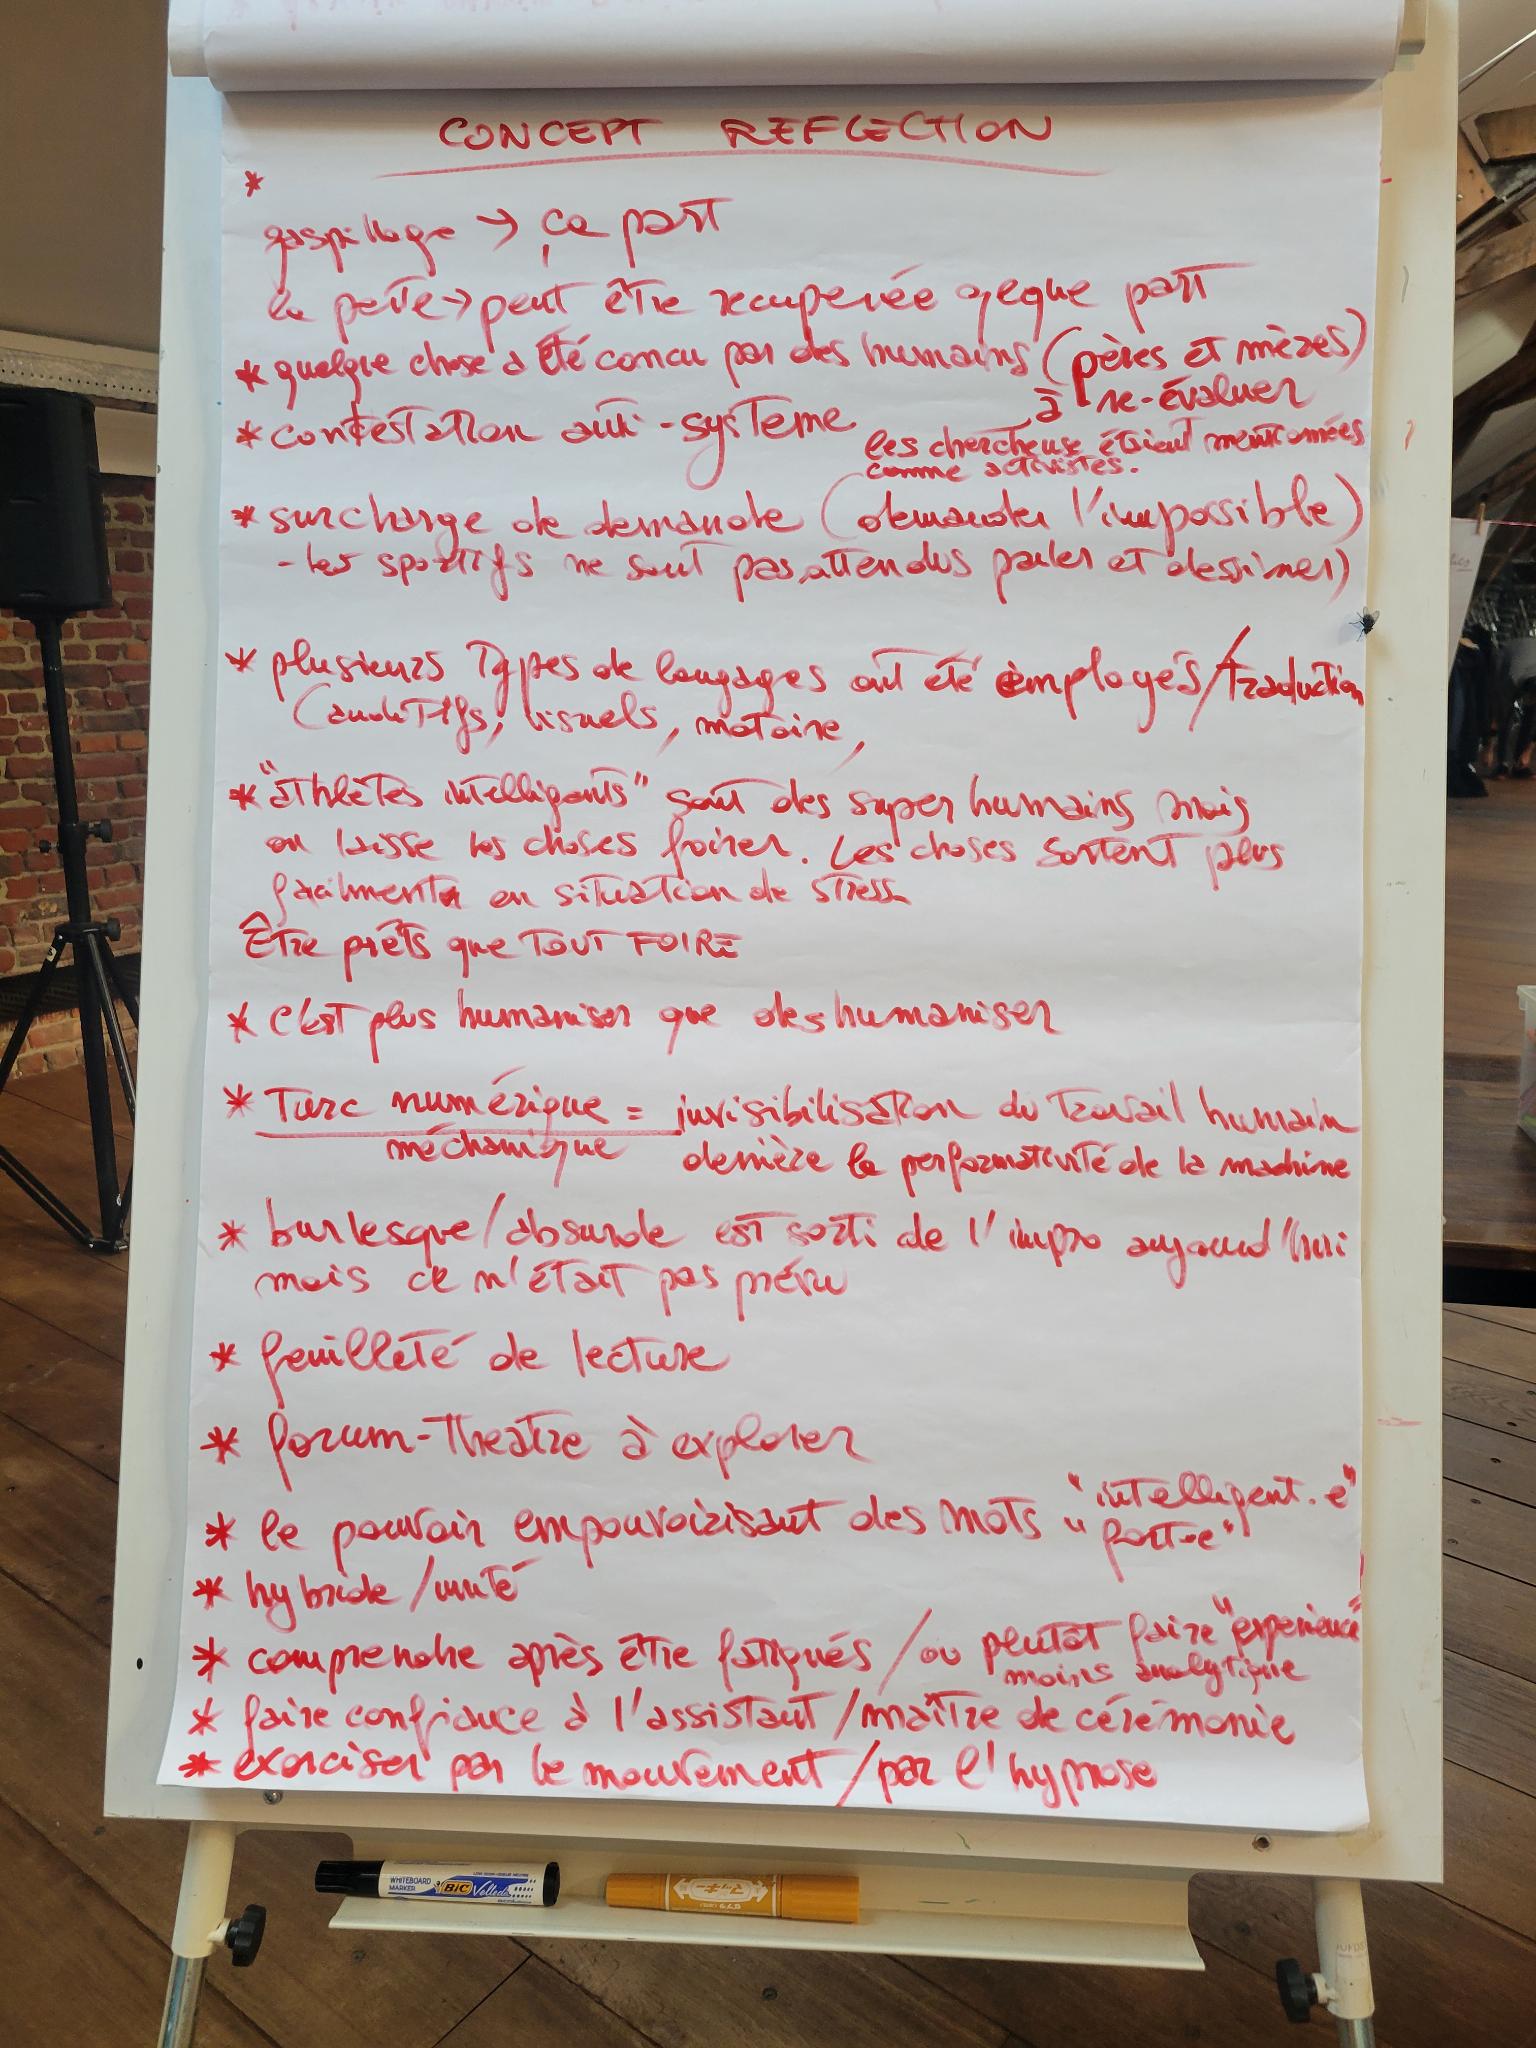 CONCEPT REFLECTION
*
gaspillage → ça part
la perte → peut être recuperée qeque part
* quelque chose a été concu par des humains (pères et mères)
à re-évaluer
* contestation anti-systeme
les chercheuse étaient mentionnées
comme activistes.
* surcharge de demande (demander l'impossible)
- les sportifs ne sont pas attendus parler et dessiner)
* plusieurs Types de langages ont été employés/traduction
(auditifs, visuels, motoire,
* "athlètes intelligents" sont des super humains mais
on laisse les choses foirer. Les choses sortent plus
facilment en situation de stress
Être prêts que TOUT FOIRE
* c'est plus humaniser que deshumaniser
* Turc numérique = invisibilisation du Travail humain
méchanique derrière la performativité de la machine
* burlesque/absurde est sorti de l'impro aujourd'hui
mais ce n'était pas prévu
* feuilleté de lecture
* forum-theatre à explorer
* le pouvoir empouvoirisant des mots "intelligent.e"
"fort-e"
* hybride/unité
* comprendre après être fatigués / ou plutôt faire "experience"
moins analytique
* faire confiance à l'assistant/maître de cérémonie
* exorciser par le mouvement/par l'hypnose
WHITEBOARD
MARKER
BIC
Velleda